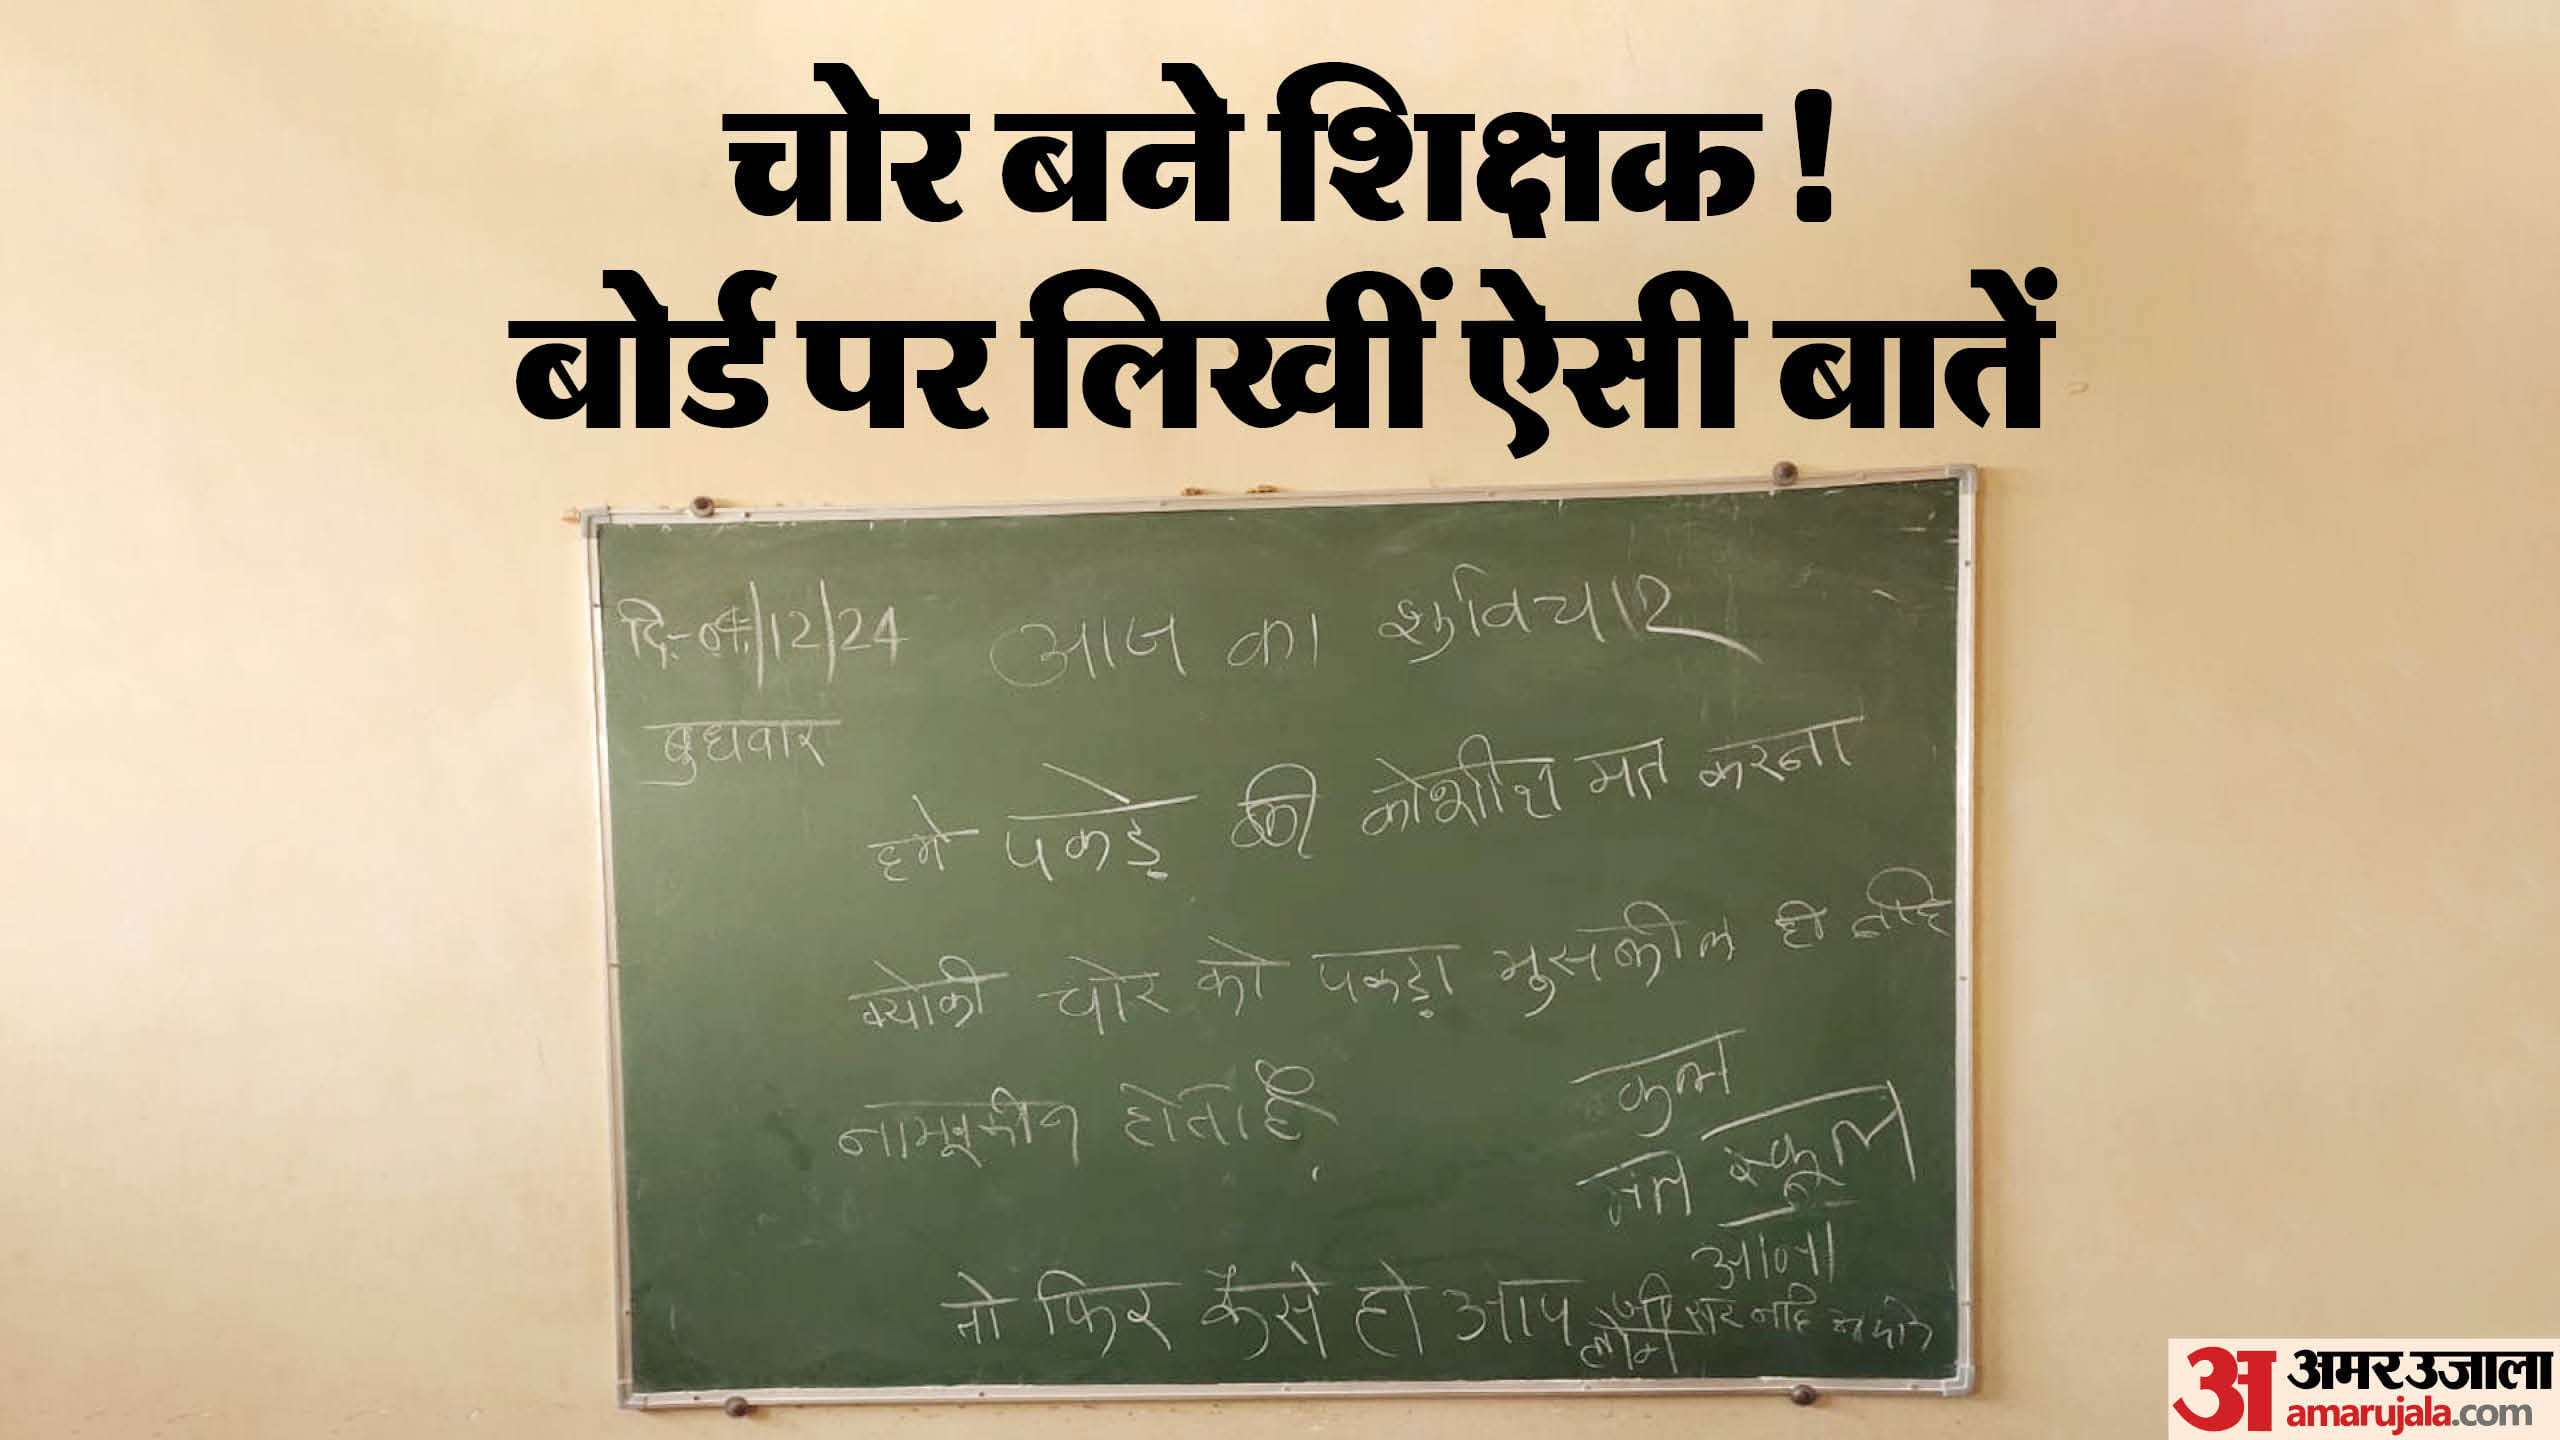 चोर बने शिक्षक!
बोर्ड पर लिखीं ऐसी बातें
दि:-04/12/24 आज का शुविचार
बुधवार
हमे पकड़े की कोशीश मत करना
क्योकी चोर को पकड़ा मुसकील ही नहि
नामूमकीन होता है
कल
मत स्कूल
आना
तो फिर कैसे हो आप लोग
नहि
अमर उजाला
amarujala.com